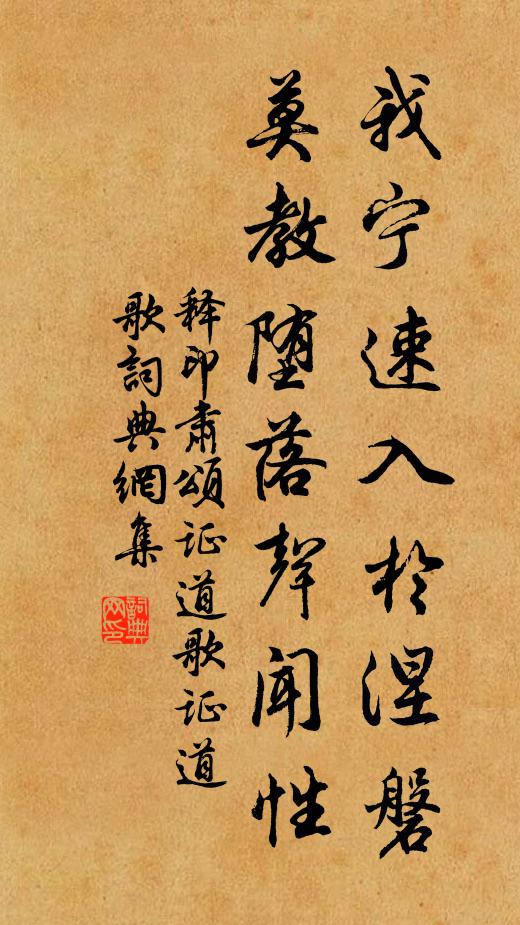 我宁速入於涅磐
莫教堕落聲闻性
释印肃頌证道歌证道
歌詞典網集
詞典
网印